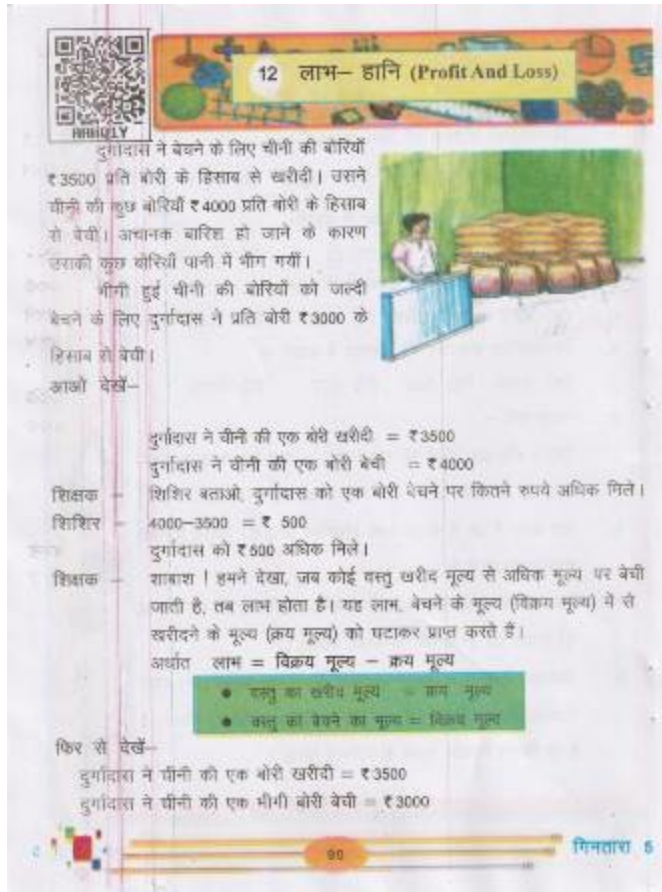 12 लाभ– हानि (Profit And Loss)
दुर्गादास ने बेचने के लिए चीनी की बोरियाँ
₹3500 प्रति बोरी के हिसाब से खरीदी। उसने
चीनी की कुछ बोरियाँ ₹4000 प्रति बोरी के हिसाब
से बेची। अचानक बारिश हो जाने के कारण
उसकी कुछ बोरियाँ पानी में भीग गयीं।
भीगी हुई चीनी की बोरियों को जल्दी
बेचने के लिए दुर्गादास ने प्रति बोरी ₹3000 के
हिसाब से बेची।
आओ देखें–
दुर्गादास ने चीनी की एक बोरी खरीदी = ₹3500
दुर्गादास ने चीनी की एक बोरी बेची = ₹4000
शिक्षक – शिशिर बताओ, दुर्गादास को एक बोरी बेचने पर कितने रुपये अधिक मिले।
शिशिर – 4000–3500 = ₹ 500
दुर्गादास को ₹500 अधिक मिले।
शिक्षक – शाबाश ! हमने देखा, जब कोई वस्तु खरीद मूल्य से अधिक मूल्य पर बेची
जाती है, तब लाभ होता है। यह लाभ, बेचने के मूल्य (विक्रय मूल्य) में से
खरीदने के मूल्य (क्रय मूल्य) को घटाकर प्राप्त करते हैं।
अर्थात लाभ = विक्रय मूल्य – क्रय मूल्य
● वस्तु का खरीद मूल्य = क्रय मूल्य
● वस्तु का बेचने का मूल्य = विक्रय मूल्य
फिर से देखें–
दुर्गादास ने चीनी की एक बोरी खरीदी = ₹3500
दुर्गादास ने चीनी की एक भीगी बोरी बेची = ₹3000
गिनतारा 5